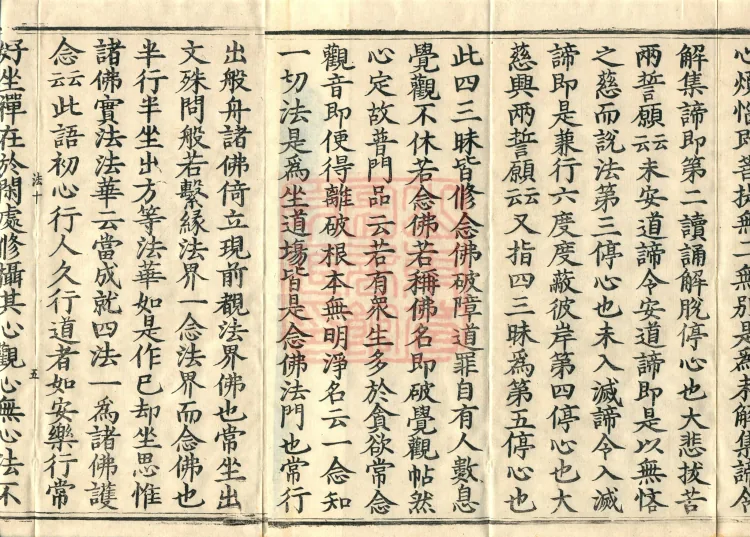 心煩惱即菩提無二無別是爲未解集諦令
解集諦即第二讀誦解脫停心也大悲拔苦
兩誓願云云未安道諦令安道諦即是以無悋
之慈而說法第三停心也未入滅諦令入滅
諦即是兼行六度度蔽彼岸第四停心也大
慈興兩誓願云云又指四三昧爲第五停心也
此四三昧皆修念佛破障道罪自有人數息
覺觀不休若念佛若稱佛名即破覺觀帖然
心定故普門品云若有衆生多於貪欲常念
觀音即便得離破根本無明淨名云一念知
一切法是爲坐道場皆是念佛法門也常行
出般舟諸佛倚立現前觀法界佛也常坐出
文殊問般若繫緣法界一念法界而念佛也
半行半坐出方等法華如是作已却坐思惟
諸佛實法法華云當成就四法一爲諸佛護
念云云此語初心行人久行道者如安樂行常
法十 五
好坐禪在於閑處修攝其心觀心無心法不